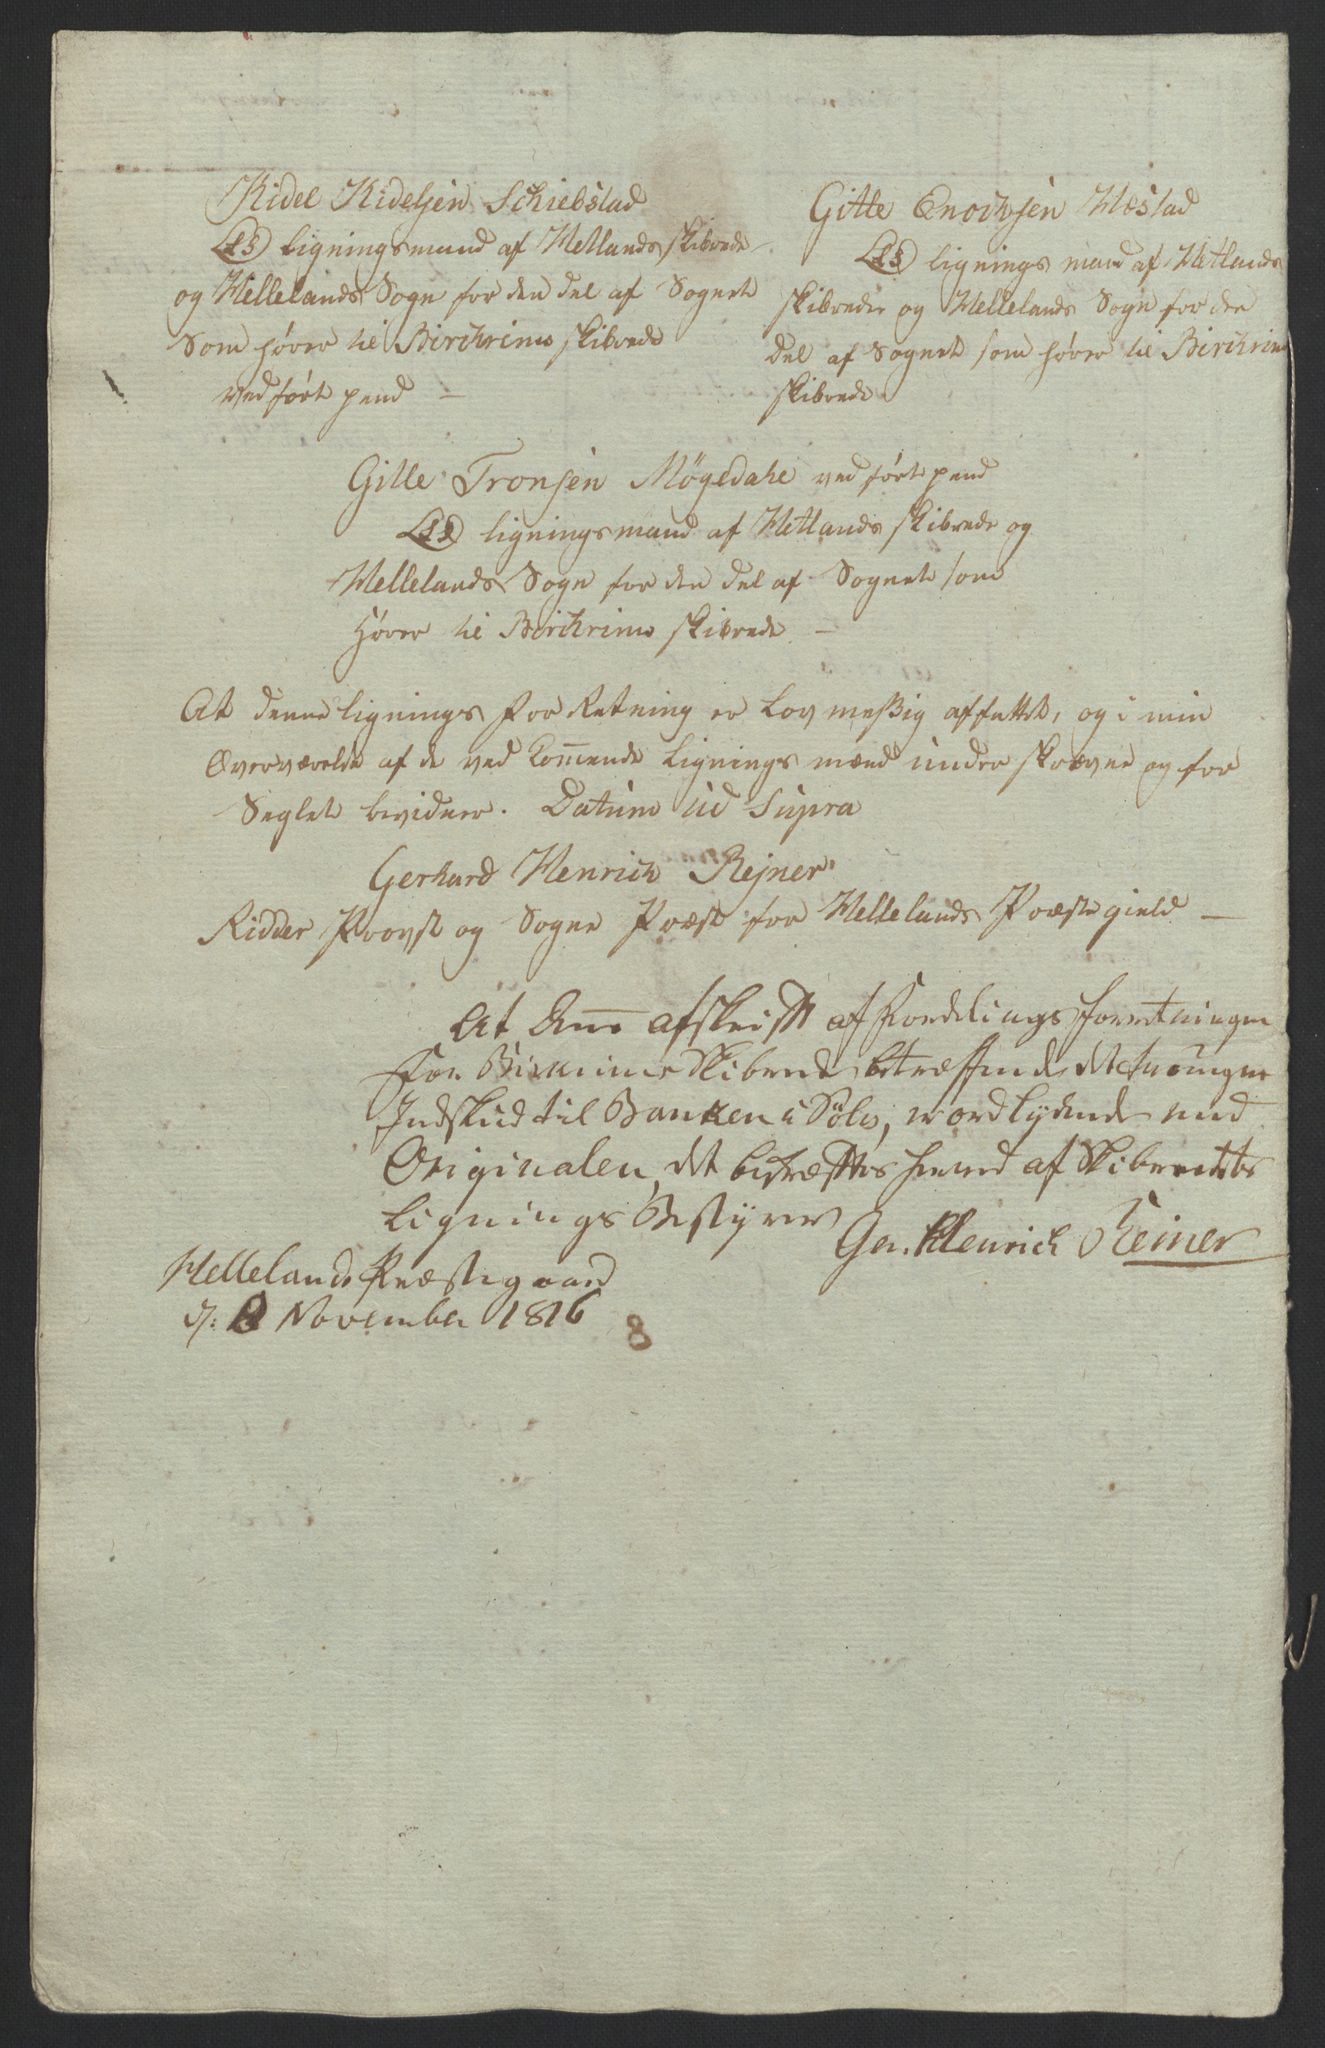 Kidel Kidelsen Schiebstad
(LS) ligningsmand af Hetlands skibrede
og Hellelands Sogn for den del af Sognet
Som hører til Birchrims skibrede
ved ført pend —
Gitle Enochsen Hæstad
(LS) lignings mand af Hetlands
skibrede og Hellelands Sogn for den
del af Sognet som hører til Birchrims
skibrede
Gitle Tronsen Mögedahl ved ført pend
(LS) ligningsmand af Hetlands skibrede og
Hellelands Sogn for den del af Sognet som
Hører til Birchrims skibrede —
At denne lignings For Retning er Lov meßig affattet, og i min
Overværelse af de ved Kom̄ende Lignings mænd under skrevne og for
Seglet bevidner. Datum ud Supra
Gerhard Henrich Rejner
Ridder Provst og Sogne Præst for Hellelands Præstegield —
At denne afskrift af Fordelings forretningen
for Birkrims Skibrede betreffende det tvungne
Indskud til Banken i Sölv, er ordlydende med
Originalen, det bekræftes herved af Skibredets
Lignings Bestyrer
Ger. Henrich Reiner
Hellelands Præstegaard
d: 8 November 1816
8